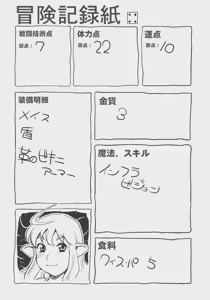 冒険記録紙
戦闘技術点
原点: 7
体力点
原点: 22
運点
原点: 10
装備明細
メイス
盾
革のビキニ
アーマー
金貨
3
魔法、スキル
インフラ
ビジョン
食料
ウィスパ 5